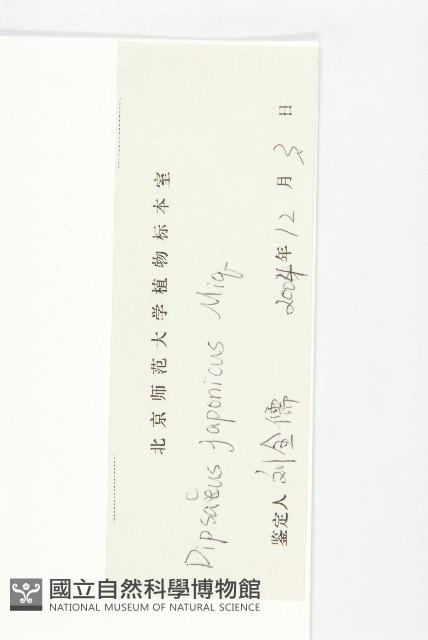 北京师范大学植物标本室
Dipsacus japonicus Miq.
鉴定人 刘全儒 2004年12月3日
國立自然科學博物館
NATIONAL MUSEUM OF NATURAL SCIENCE